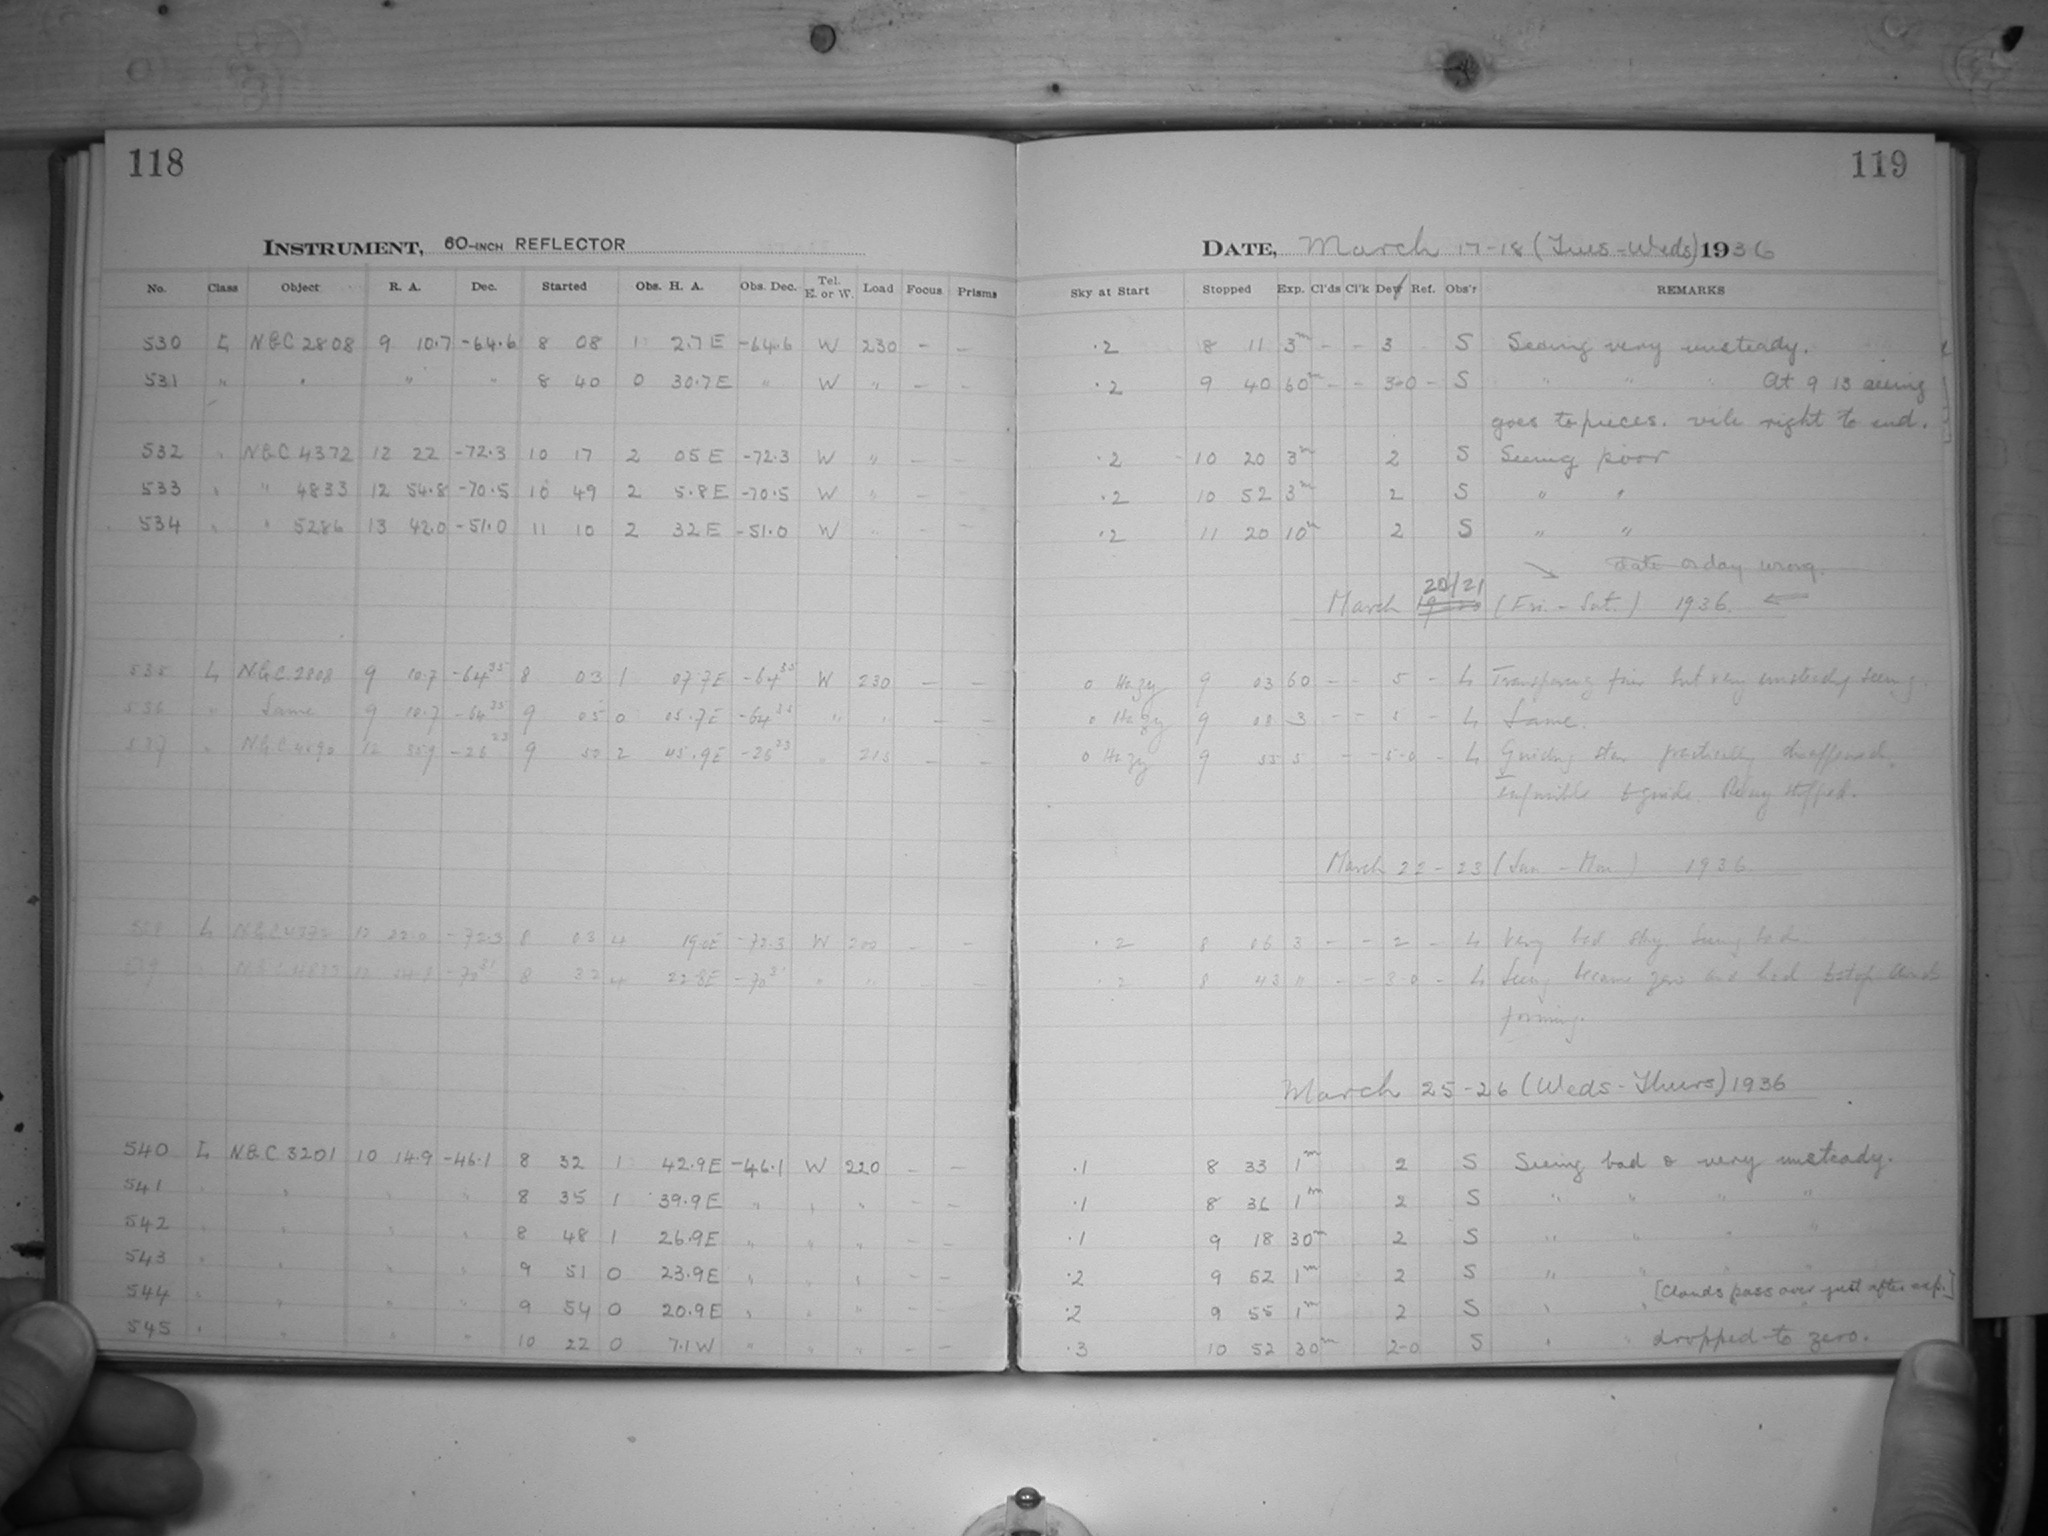 118
INSTRUMENT, 60-INCH REFLECTOR
No. Class Object R. A. Dec. Started Obs. H. A. Obs. Dec. Tel. E. or W. Load Focus Prisms
530 L NGC 2808 9 10.7 -64.6 8 08 1 2.7 E -64.6 W 230 - -
531 " " " " 8 40 0 30.7 E " W " - -
532 " NGC 4372 12 22 -72.3 10 17 2 05 E -72.3 W " - -
533 " " 4833 12 54.8 -70.5 10 49 2 5.8 E -70.5 W " - -
534 " " 5286 13 42.0 -51.0 11 10 2 32 E -51.0 W " - -
535 L NGC 2808 9 10.7 -64 35 8 03 1 07.7E -64 35 W 230 - -
536 " Same 9 10.7 -64 35 9 05 0 05.7E -64 35 " " - -
537 " 12 -26 23 9 2 45.9E -26 23 " 215 - -
L 12 22.0 -72.3 8 03 4 19.0E -72.3 W - -
-70 31 8 32 4 22.8E -70 31 " " - -
540 L NGC 3201 10 14.9 -46.1 8 32 1 42.9 E -46.1 W 220 - -
541 " " " " 8 35 1 39.9 E " " " - -
542 " " " " 8 48 1 26.9 E " " " - -
543 " " " " 9 51 0 23.9 E " " " - -
544 " " " " 9 54 0 20.9 E " " " - -
545 " " " " 10 22 0 7.1 W " " " - -
119
DATE, March 17-18 (Tues-Weds) 1936
Sky at Start Stopped Exp. Cl'ds Cl'k Dew Ref. Obs'r REMARKS
.2 8 11 3m - - 3 S Seeing very unsteady.
.2 9 40 60m - - 3-0 - S " " " At 9 13 seeing
goes to pieces. vile right to end.
.2 10 20 3m 2 S Seeing poor
.2 10 52 3m 2 S " "
.2 11 20 10m 2 S " "
Date or day wrong.
March 20/21 (Fri. - Sat.) 1936.
0 Hazy 9 03 60 - - 5 - L Transparency fair but very unsteady seeing.
0 Hazy 9 08 3 - - 5 - L Same.
0 Hazy 9 55 5 - - 5-0 - L Guiding star practically disappeared.
Impossible to guide. stopped.
March 22 - 23 (Sun - Mon) 1936
.2 8 06 3 - - 2 - L Very bad sky. Seeing bad
.2 8 43 " - - 3-0 - L Seeing became zero and had to stop
forming.
March 25-26 (Weds-Thurs) 1936
.1 8 33 1m 2 S Seeing bad & very unsteady.
.1 8 36 1m 2 S " " " "
.1 9 18 30m 2 S " " " "
.2 9 52 1m 2 S " " " "
[Clouds pass over just after exp.]
.2 9 55 1m 2 S " " " "
.3 10 52 30m 2-0 S " " dropped to zero.